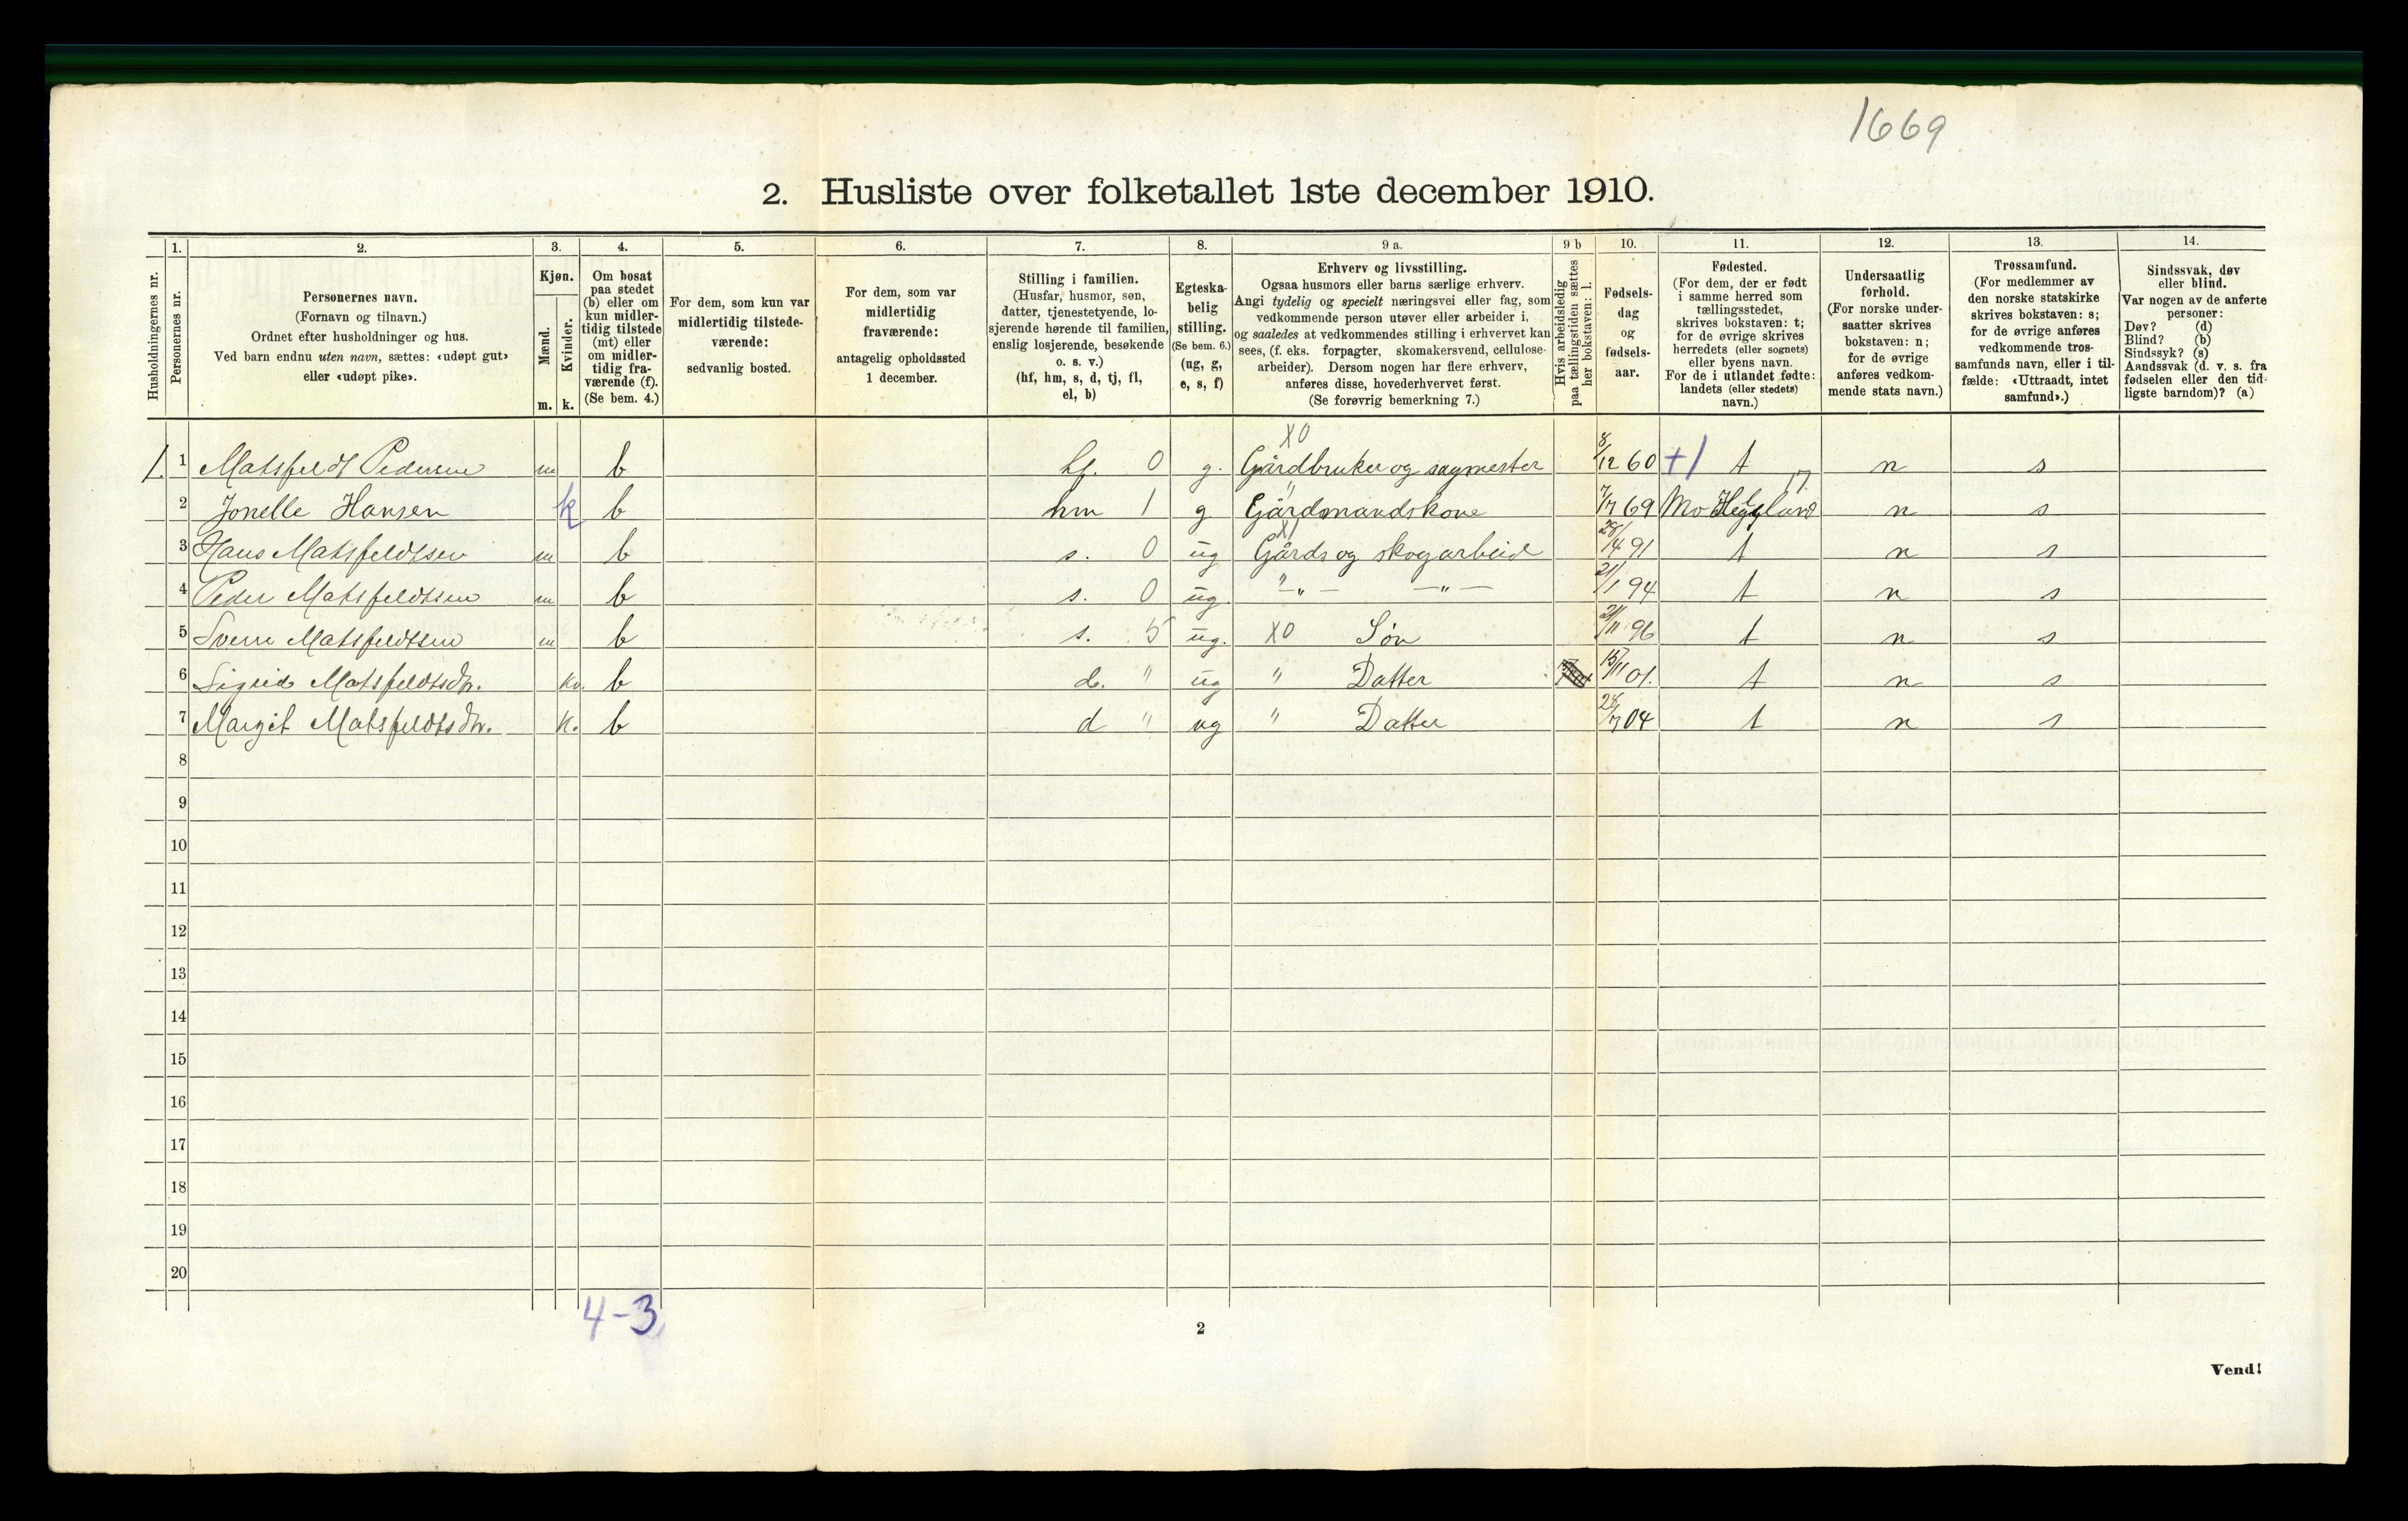 1669
2. Husliste over folketallet 1ste december 1910.
1. 2. 3. 4. 5. 6. 7. 8. 9 a. 9 b 10. 11. 12. 13. 14.
Husholdningernes nr.
Personernes nr.
Personernes navn.
(Fornavn og tilnavn.)
Ordnet efter husholdninger og hus.
Ved barn endnu uten navn, sættes: «udøpt gut»
eller «udøpt pike».
Kjøn.
Mænd.
Kvinder.
m. k.
Om bosat
paa stedet
(b) eller om
kun midler-
tidig tilstede
(mt) eller
om midler-
tidig fra-
værende (f).
(Se bem. 4.)
For dem, som kun var
midlertidig tilstede-
værende:
sedvanlig bosted.
For dem, som var
midlertidig
fraværende:
antagelig opholdssted
1 december.
Stilling i familien.
(Husfar, husmor, søn,
datter, tjenestetyende, lo-
sjerende hørende til familien,
enslig losjerende, besøkende
o. s. v.)
(hf, hm, s, d, tj, fl,
el, b)
Egteska-
belig
stilling.
(Se bem. 6.)
(ug, g,
e, s, f)
Erhverv og livsstilling.
Ogsaa husmors eller barns særlige erhverv.
Angi tydelig og specielt næringsvei eller fag, som
vedkommende person utøver eller arbeider i,
og saaledes at vedkommendes stilling i erhvervet kan
sees, (f. eks. forpagter, skomakersvend, cellulose-
arbeider). Dersom nogen har flere erhverv,
anføres disse, hovederhvervet først.
(Se forøvrig bemerkning 7.)
Hvis arbeidsledig
paa tællingstiden sættes
her bokstaven: l.
Fødsels-
dag
og
fødsels-
aar.
Fødested.
(For dem, der er født
i samme herred som
tællingsstedet,
skrives bokstaven: t;
for de øvrige skrives
herredets (eller sognets)
eller byens navn.
For de i utlandet fødte:
landets (eller stedets)
navn.)
Undersaatlig
forhold.
(For norske under-
saatter skrives
bokstaven: n;
for de øvrige
anføres vedkom-
mende stats navn.)
Trossamfund.
(For medlemmer av
den norske statskirke
skrives bokstaven: s;
for de øvrige anføres
vedkommende tros-
samfunds navn, eller i til-
fælde: «Uttraadt, intet
samfund».)
Sindssvak, døv
eller blind.
Var nogen av de anførte
personer:
Døv? (d)
Blind? (b)
Sindssyk? (s)
Aandssvak (d. v. s. fra
fødselen eller den tid-
ligste barndom)? (a)
X0
1. 1 Matsfeldt Pedersen m b hf. 0 g. Gårdbruker og sagmester 8/12 60 +1 t n s
2 Jonelle Hansen k b hm 1 g " Gårdmandskone 7/7 69 Mo n s
X1
3 Hans Matsfeldtsen m b s. 0 ug Gårds og skogarbeid 28/4 91 t n s
4 Peder Matsfeldtsen m b s. 0 ug. " — " — — " — 21/1 94 t n s
5 Sverre Matsfeldtsen m b s. 5 ug. X0 Søn 96 t n s
6 Sigrid Matsfeldtsdtr. kv. b d. " ug " Datter 15/11 01. t n s
7 Margit Matsfeldtsdtr. k. b d " ug " Datter 04 t n s
8
9
10
11
12
13
14
15
16
17
18
19
20
4-3
2
Vend!